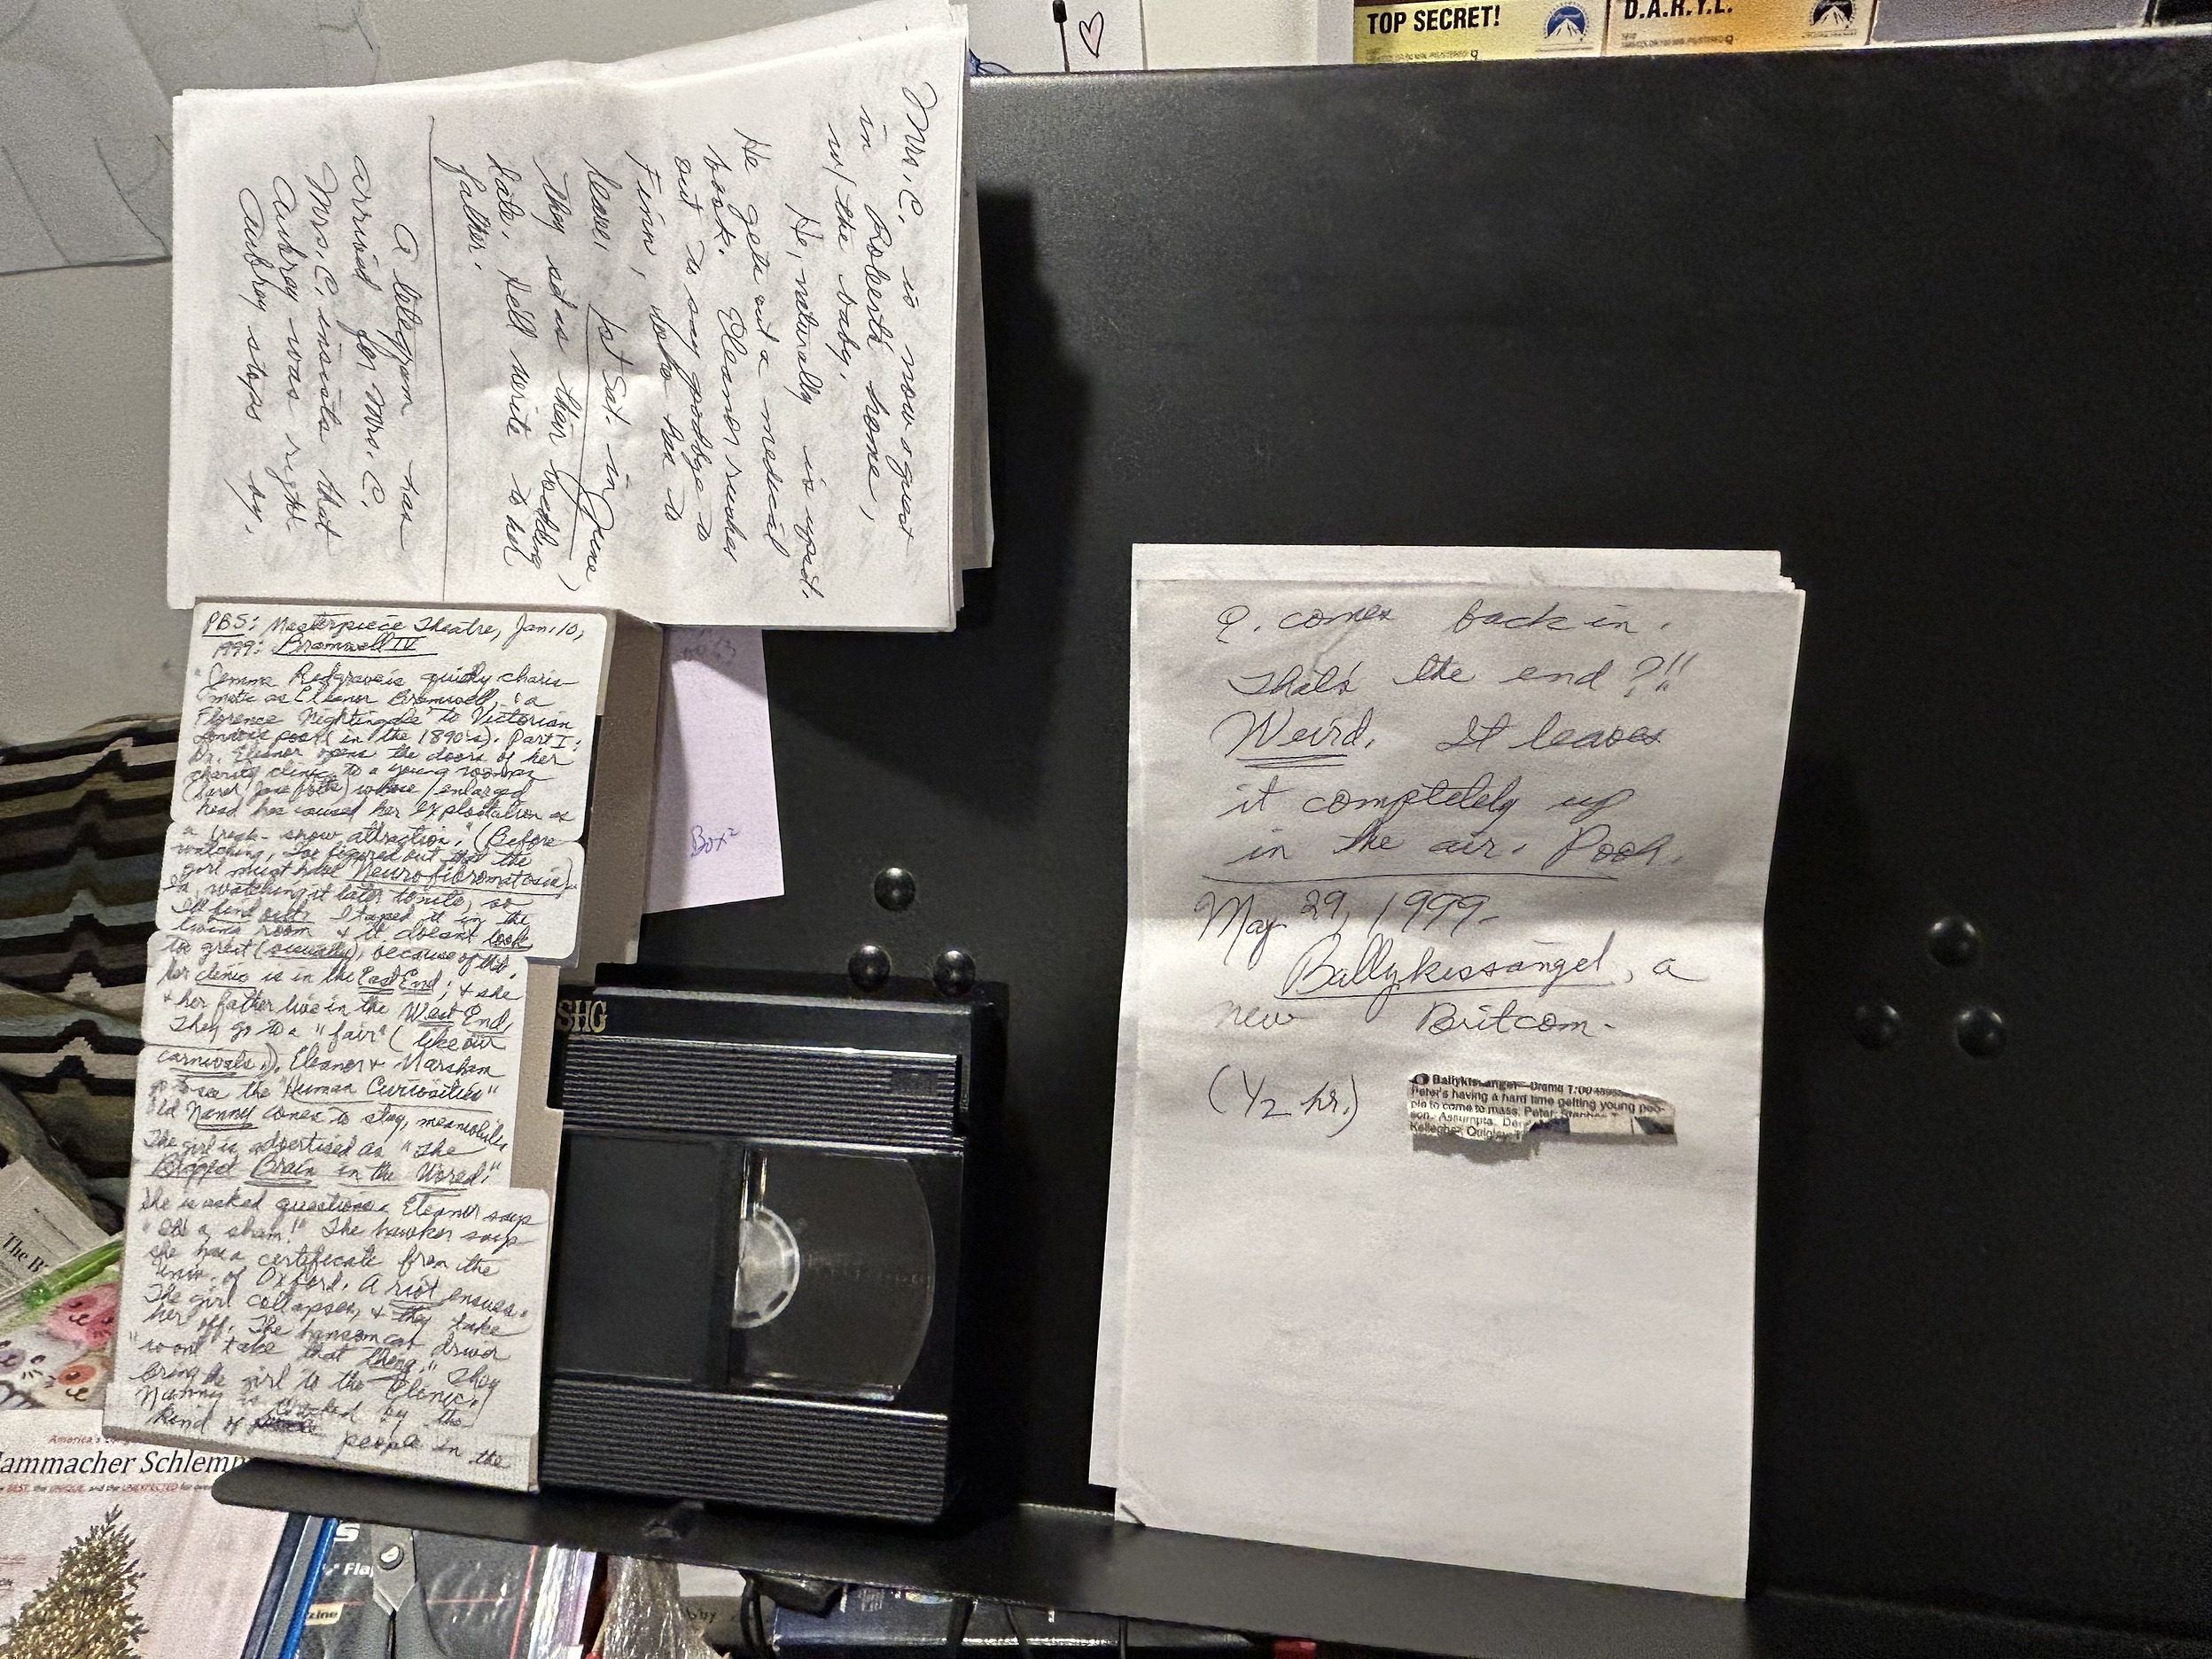 TOP SECRET!
D.A.R.Y.L.
Mrs. C. is now a guest
in Robert's home,
w/ the baby.
He, naturally is upset.
He gets out a medical
book. Eleanor rushes
out to say goodbye to
Finn, who has to
leave. 1st Sat. in June
they set as their wedding
date. He'll write to her
father.
A telegram has
arrived for Mrs. C.
Mrs. C. insists that
Aubrey was right.
Aubrey stops by.
PBS: Masterpiece Theatre, Jan. 10,
1999: Bramwell IV
"Jemma Redgrave is quietly charis-
matic as Eleanor Bramwell, 'a
Florence Nightingale to Victorian
London's poor (in the 1890's). Part I:
Dr. Eleanor opens the doors of her
charity clinic to a young woman
whose enlarged
head has caused her exploitation as
a freak-show attraction." (Before
watching, I've figured out that the
girl must have Neurofibromatosis)
watching it later tonite, so
I'll find out. I taped it in the
living room & it doesn't look
too great (visually), because of that.
Her clinic is in the East End; & she
& her father live in the West End.
They go to a "fair" (like our
carnivals). Eleanor & Marsham
go to see the "Human Curiosities"
Old Nanny comes to stay, meanwhile
The girl is advertised as "The
Biggest Brain in the World."
She is asked questions. Eleanor says
"It's a sham!" The hawker says
she has a certificate from the
Univ. of Oxford. A riot ensues.
The girl collapses, & they take
her off. The hansom cab driver
"won't take that thing." They
bring the girl to the Clinic.
Nanny is shocked by the
kind of people in the
Box 2
SHG
E. comes back in.
That's the end?!!
Weird. It leaves
it completely up
in the air. Pooh.
May 29, 1999-
Ballykissangel, a
new Britcom-
(1/2 hr.)
Ballykissangel—Drama 7:00
Peter's having a hard time getting young peo-
ple to come to mass. Peter: Stephen T
son. Assumpta: Der
Kellegher. Quigley: T
The
America's
Hammacher Schlemm
BEST, the UNIQUE, and the UNEXPECTED for over
Fla
zine